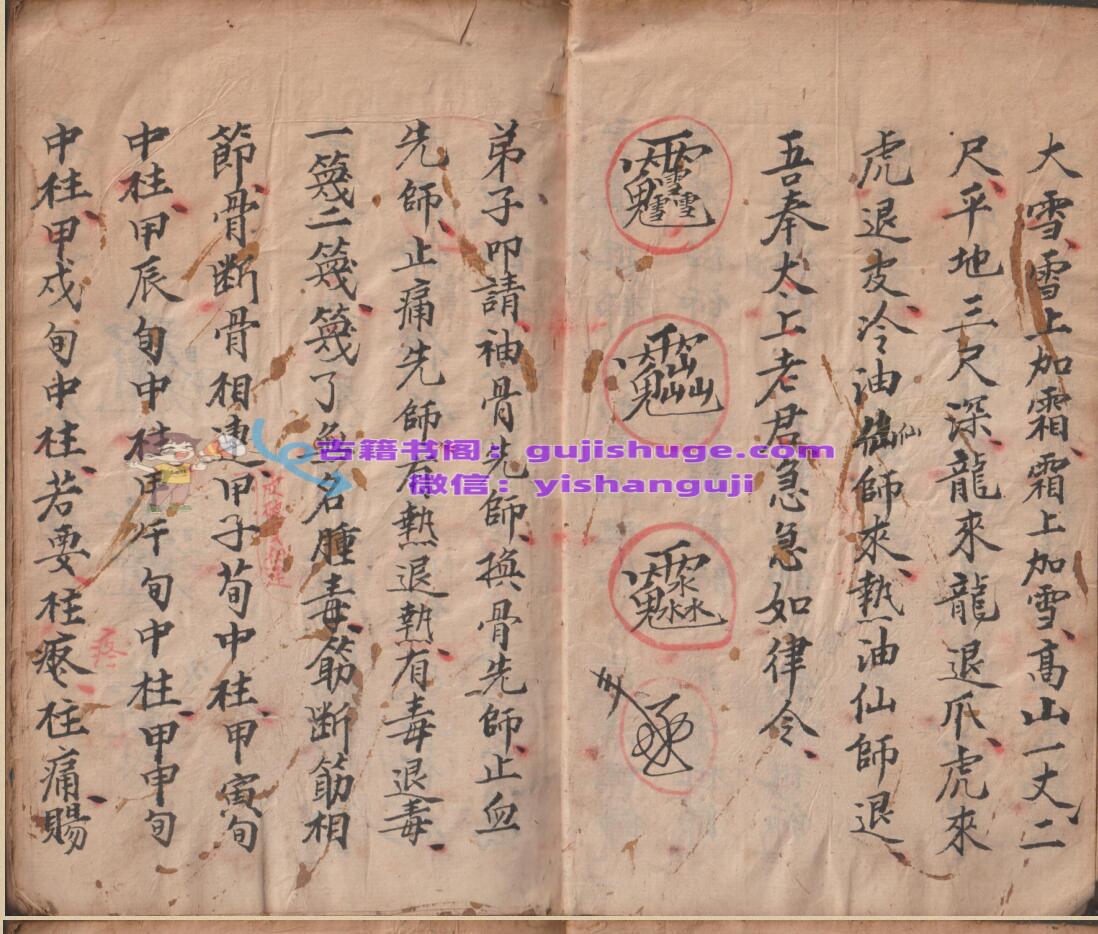 大雪、雪上加霜、霜上加雪、高山一丈二
尺、平地三尺深、龍來龍退爪、虎來
虎退皮、冷油仙師來、熱油仙師退
仙
吾奉太上老君急急如律令、
弟子叩請、袖骨先師、换骨先師、止血
先師、止痛先師、有熱退熱、有毒退毒、
一篾二篾篾了無名腫毒、筋断筋相
節、骨断骨相連、甲子荀中柱、甲寅旬
中柱、甲辰旬中柱、甲午旬中柱、甲申旬
中柱、甲戌旬中柱、若要柱疼、柱痛賜
疼
古籍书阁：gujishuge.com
微信：yishanguji